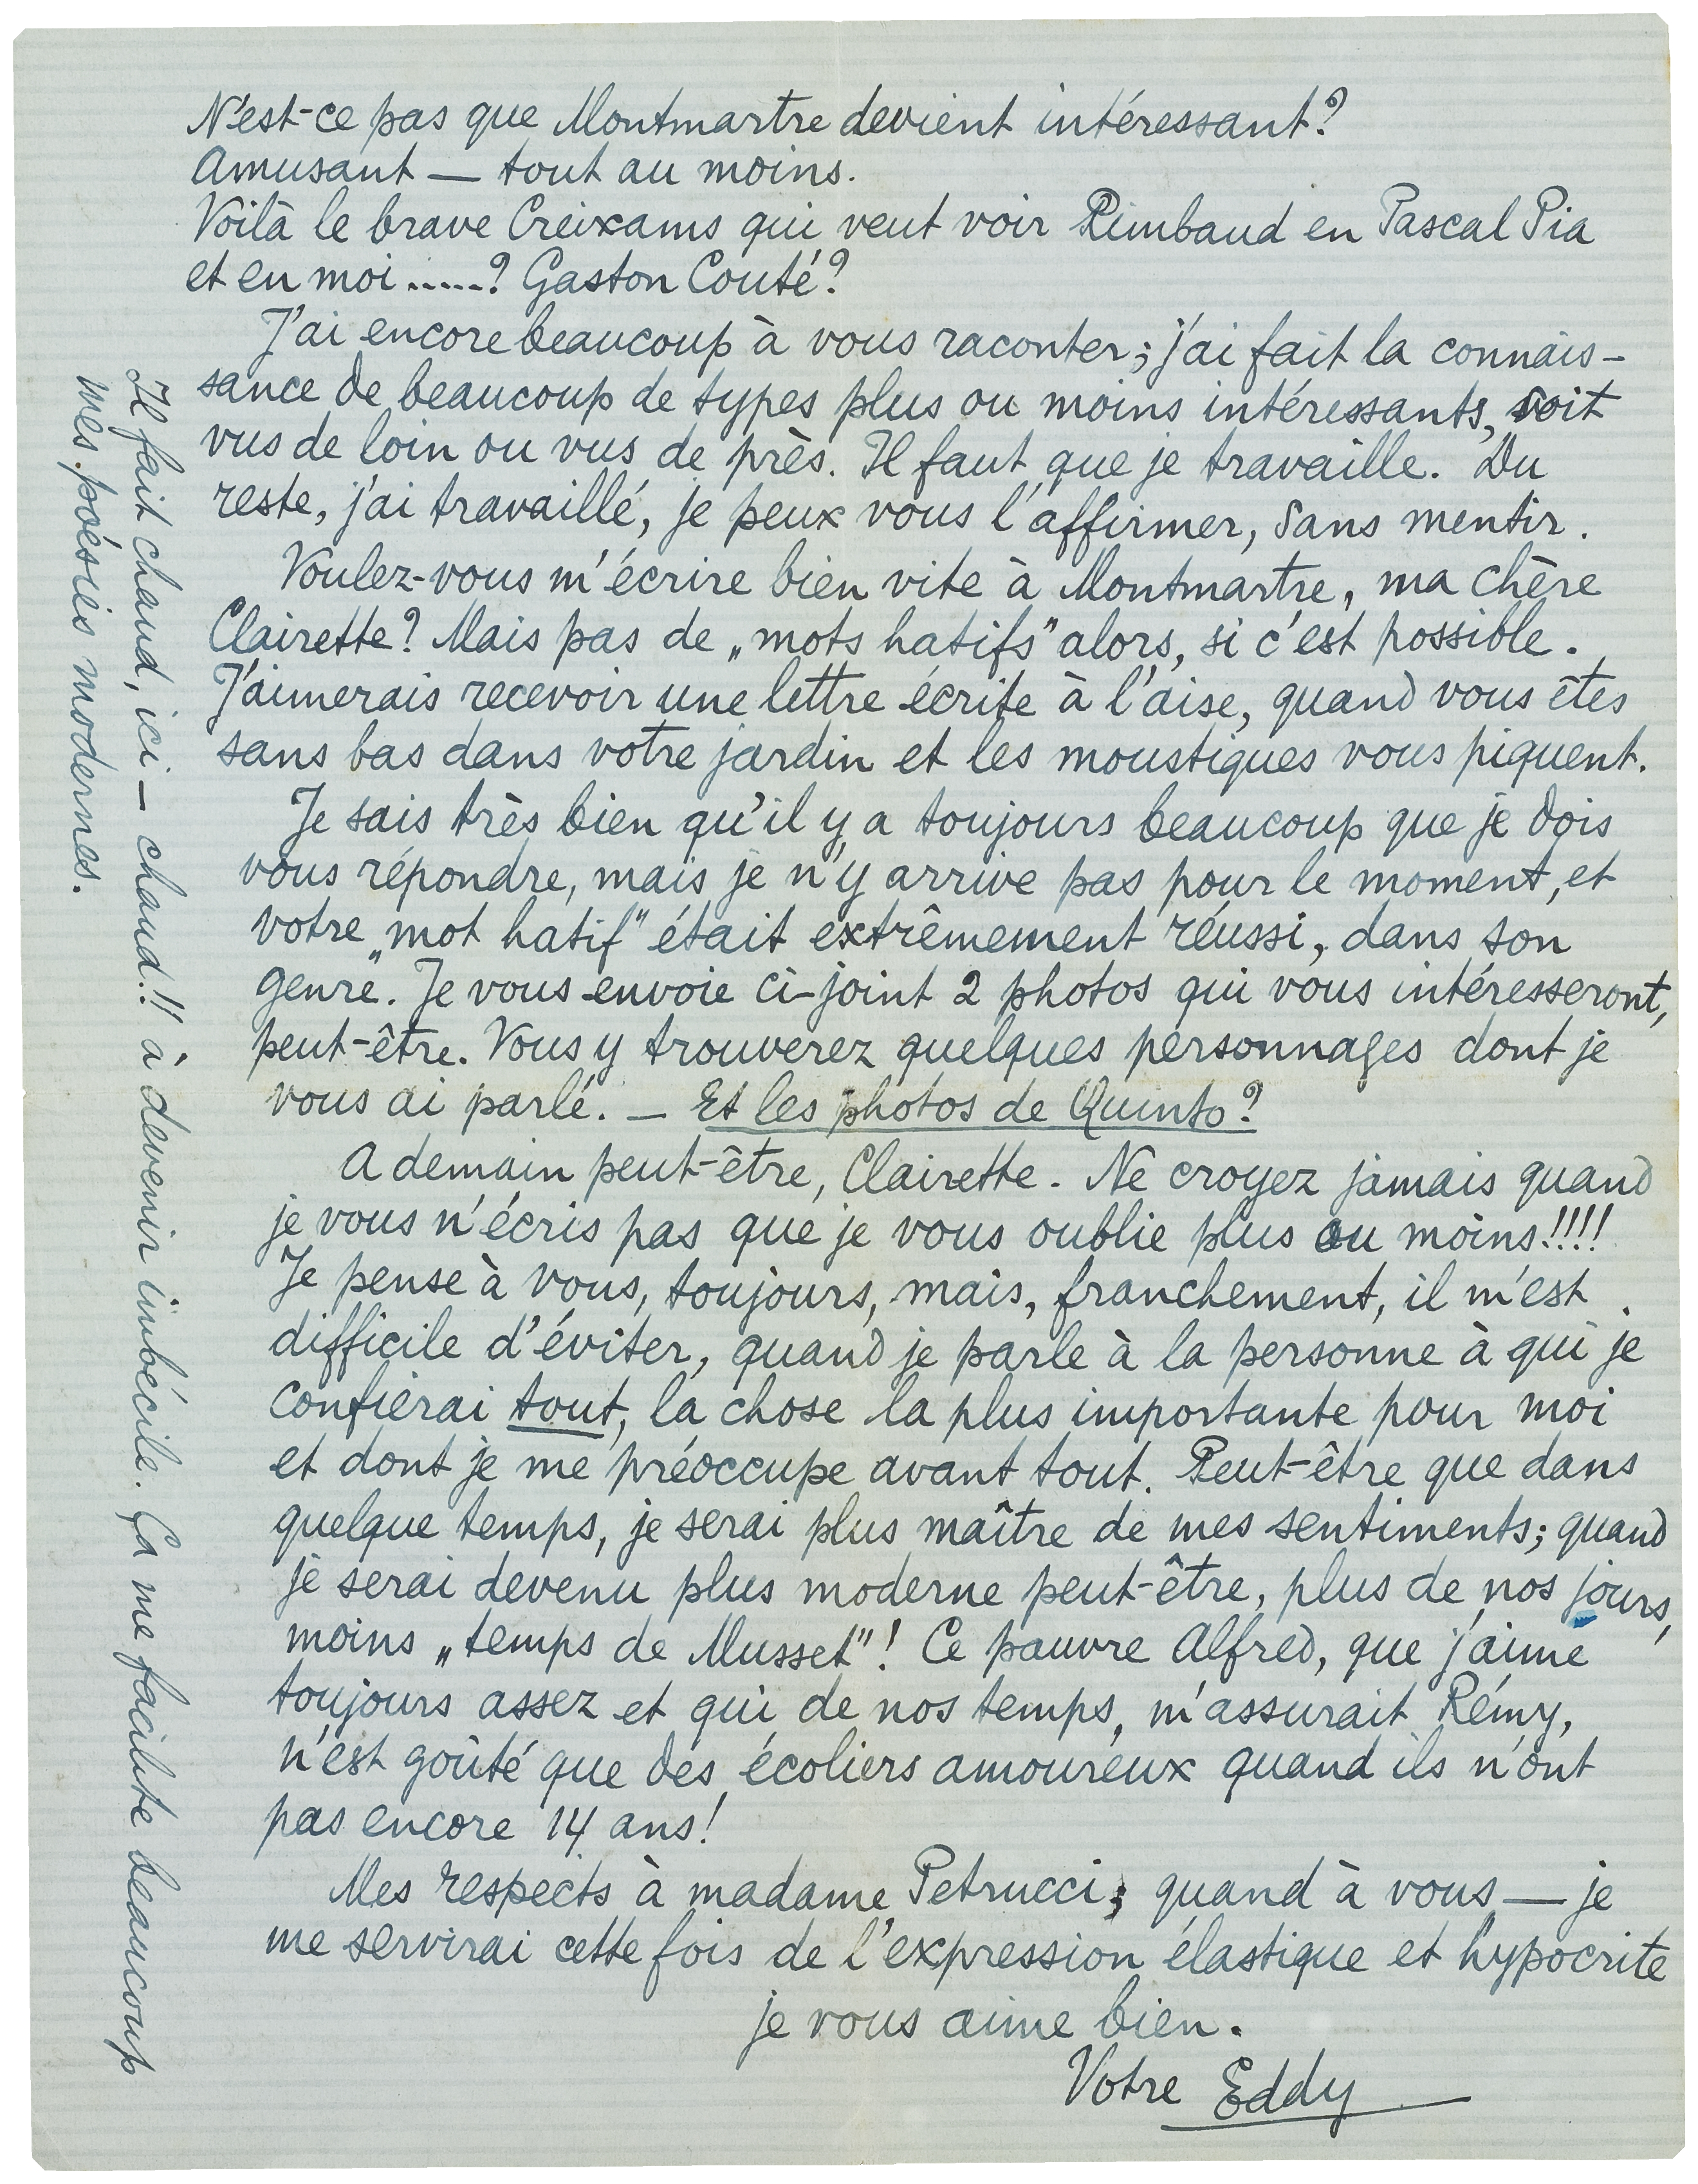 N'est-ce pas que Montmartre devient intéressant?
Amusant — tout au moins.
Voilà le brave Creixams qui veut voir Rimbaud en Pascal Pia
et en moi.....? Gaston Couté?
J'ai encore beaucoup à vous raconter; j'ai fait la connais-
sance de beaucoup de types plus ou moins intéressants, soit
vus de loin ou vus de près. Il faut que je travaille. Du
reste, j'ai travaillé, je peux vous l'affirmer, sans mentir.
Voulez-vous m'écrire bien vite à Montmartre, ma chère
Clairette? Mais pas de „mots hatifs" alors, si c'est possible.
J'aimerais recevoir une lettre écrite à l'aise, quand vous êtes
sans bas dans votre jardin et les moustiques vous piquent.
Je sais très bien qu'il y a toujours beaucoup que je dois
vous répondre, mais je n'y arrive pas pour le moment, et
votre „mot hatif" était extrêmement réussi, „dans son
genre". Je vous envoie ci-joint 2 photos qui vous intéresseront,
peut-être. Vous y trouverez quelques personnages dont je
vous ai parlé. — Et les photos de Quinto?
A demain peut-être, Clairette. Ne croyez jamais quand
je vous n'écris pas que je vous oublie plus ou moins!!!!
Je pense à vous, toujours, mais, franchement, il m'est
difficile d'éviter, quand je parle à la personne à qui je
confierai tout, la chose la plus importante pour moi
et dont je me préoccupe avant tout. Peut-être que dans
quelque temps, je serai plus maître de mes sentiments; quand
je serai devenu plus moderne peut-être, plus de nos jours,
moins „temps de Musset"! Ce pauvre Alfred, que j'aime
toujours assez et qui de nos temps, m'assurait Rémy,
n'est goûté que des écoliers amoureux quand ils n'ont
pas encore 14 ans!
Mes respects à madame Petrucci; quand à vous — je
me servirai cette fois de l'expression élastique et hypocrite
je vous aime bien.
Votre Eddy
Il fait chaud, ici — chaud!! à devenir imbécile. Ça me facilite beaucoup
mes poésies modernes.